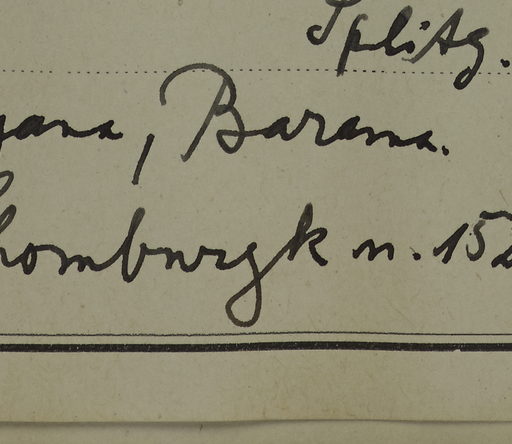 Splitg.
yana, Barama.
homburgk n. 152